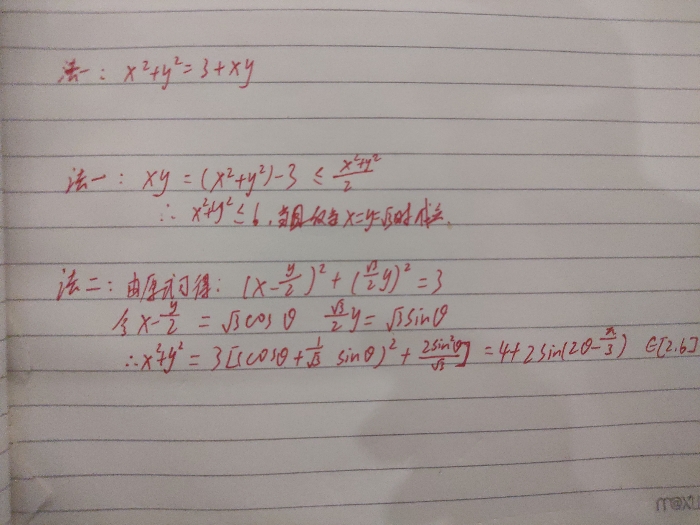 法一: x²+y²=3+xy
法一: xy=(x²+y²)-3≤\frac{x²+y²}{2}
∴ x²+y²≤6, 当且仅当x=y=√3时成立.
法二: 由原式可得: (x-\frac{y}{2})²+(\frac{√3}{2}y)²=3
令x-\frac{y}{2}=√3cosθ \frac{√3}{2}y=√3sinθ
∴x²+y²=3[(cosθ+\frac{1}{√3}sinθ)²+\frac{2sin²θ}{√3}]=4+2sin(2θ-\frac{π}{3}) ∈[2.6]